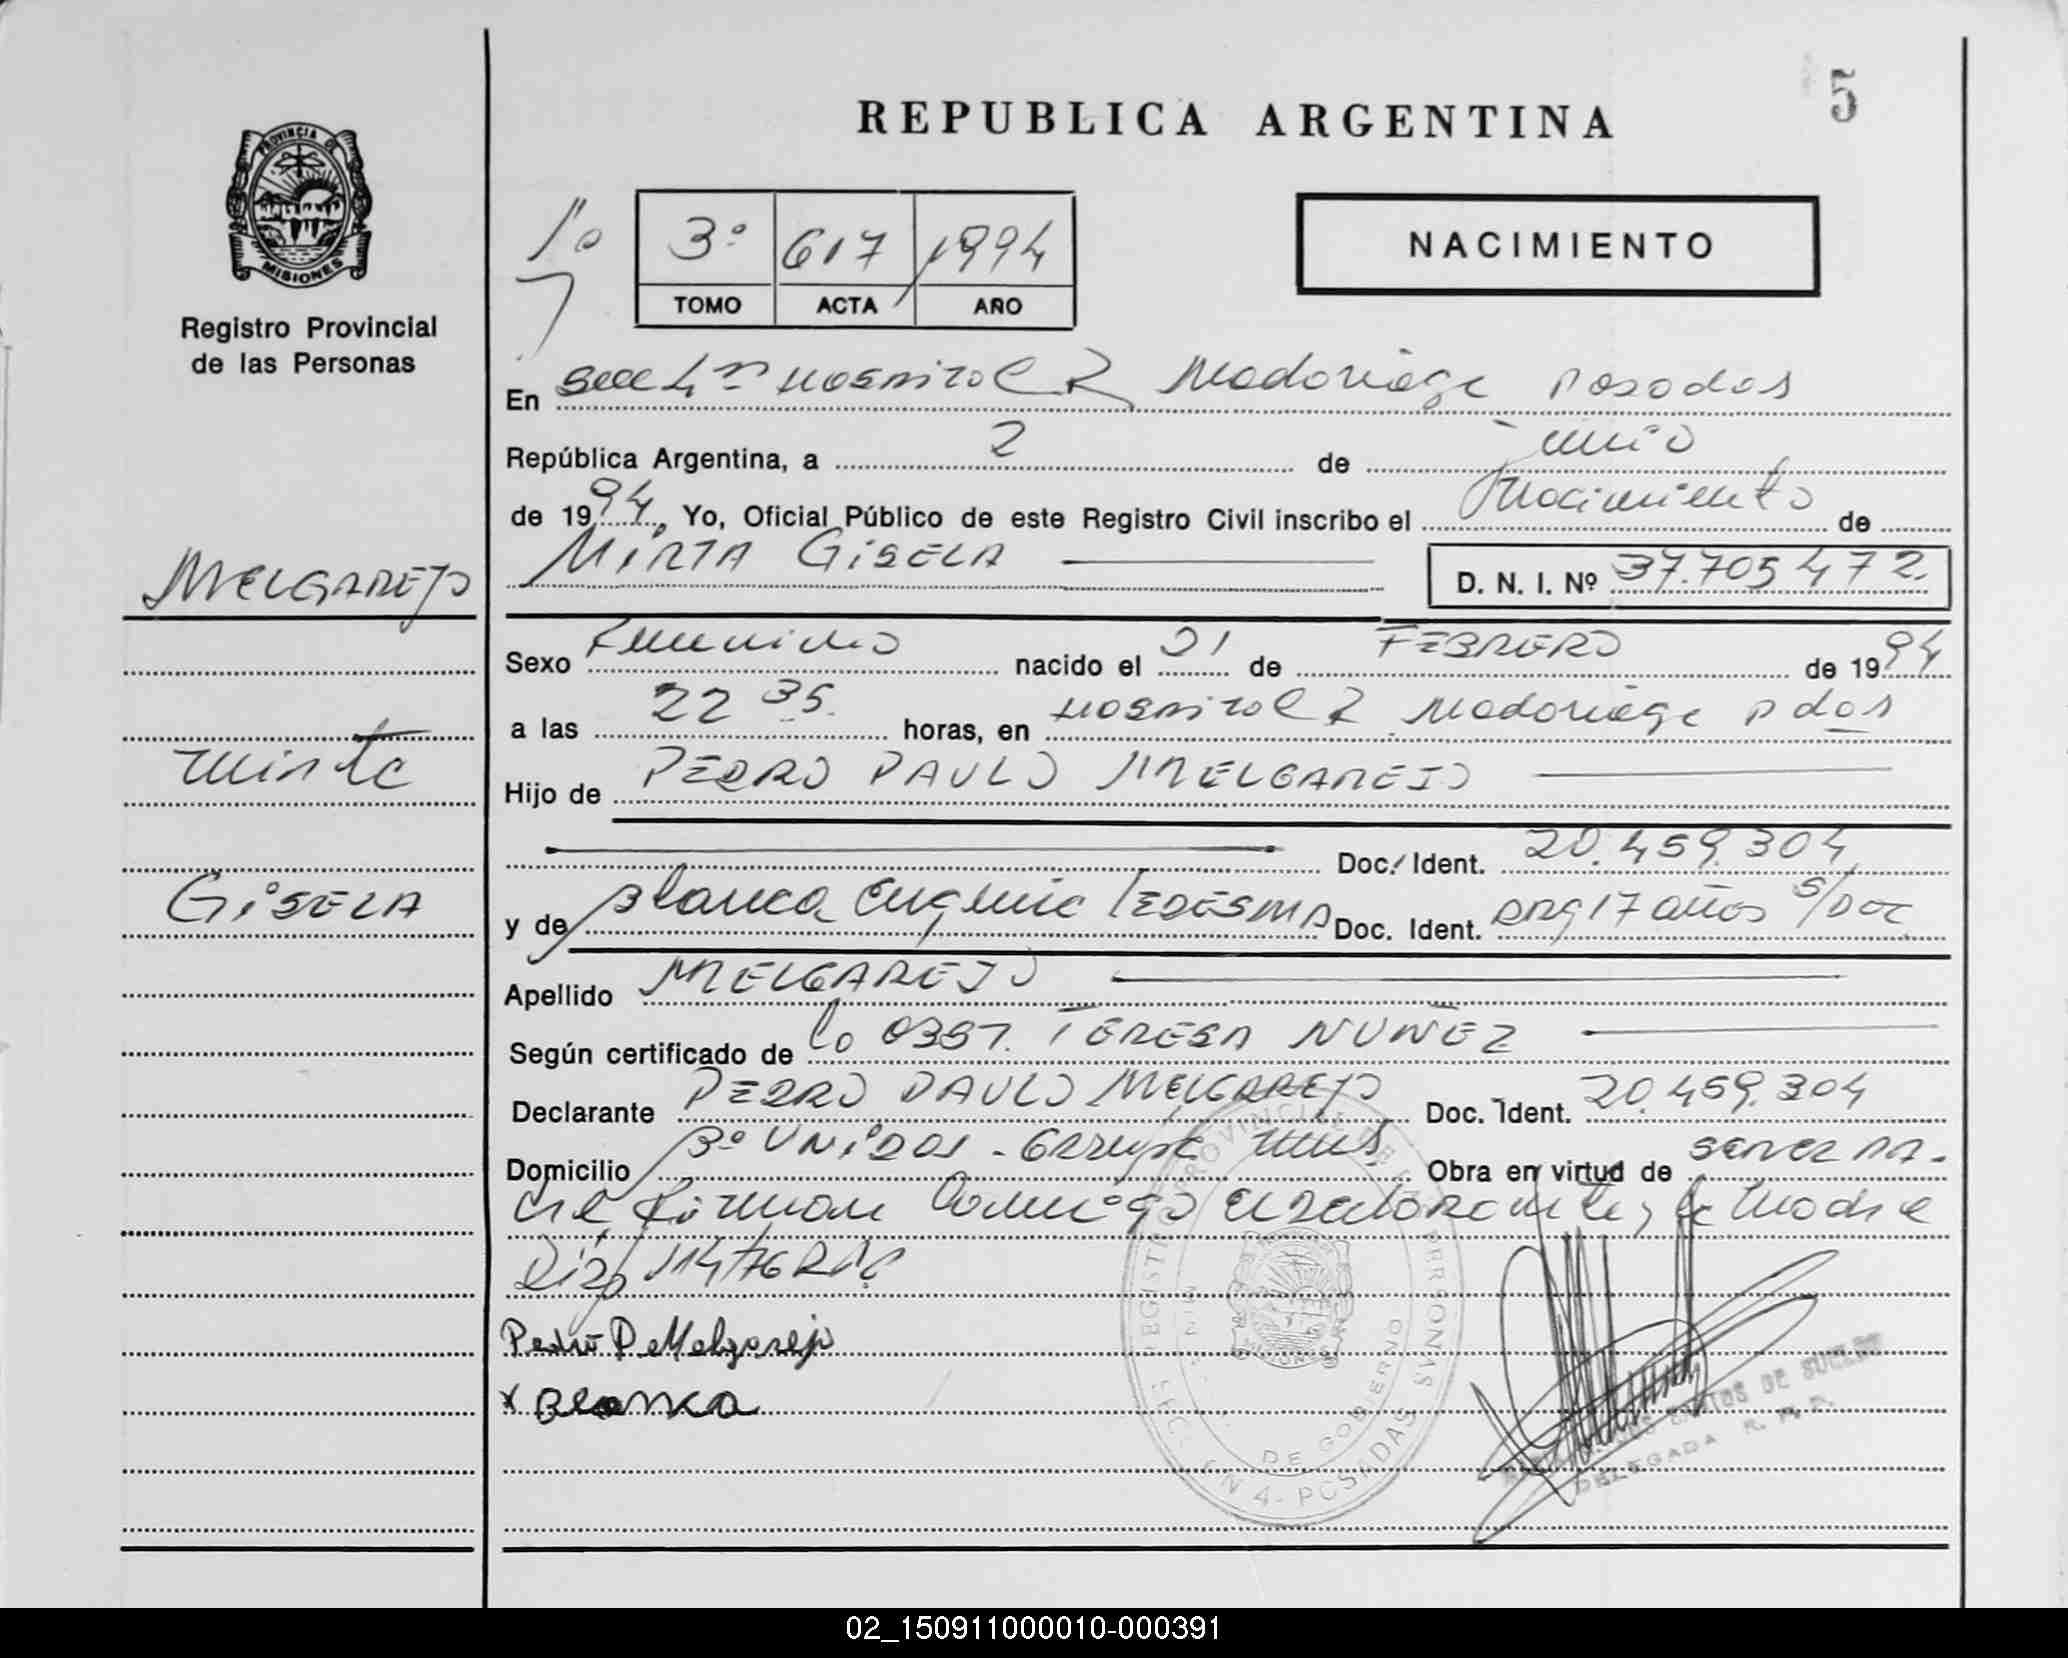 5
REPUBLICA ARGENTINA
PROVINCIA DE
MISIONES
Registro Provincial
de las Personas
3º 617 1994
TOMO ACTA AÑO
NACIMIENTO
En Secc 4ta Hospital R Madariaga Posadas
República Argentina, a 2 de junio
de 1994, Yo, Oficial Público de este Registro Civil inscribo el Nacimiento de
MIRTA GISELA D. N. I. Nº 37.705 472.
MELGAREJO
Sexo Femenino nacido el 21 de FEBRERO de 1994
a las 22 35 horas, en Hospital R Madariaga Pdas
Mirta
Hijo de PEDRO PAULO MELGAREJO
Doc. Ident. 20.459.304
GISELA
y de Blanca Eugenia LEDESMA Doc. Ident. Arg 17 años S/DOC
Apellido MELGAREJO
Según certificado de la OBST. TERESA NUÑEZ
Declarante PEDRO PAULO MELGAREJO Doc. Ident. 20.459.304
Domicilio Bº UNIDOS - Garupá Mnes Obra en virtud de
firman conmigo el declarante y la Madre
Disp 114/76
Pedro P Melgarejo
x Blanca
REGISTRO PROVINCIAL DE LAS PERSONAS
DE GOBIERNO
SECCION 4 - POSADAS
SANTOS DE SUCLSO
DELEGADA R. P. P.
02_150911000010-000391